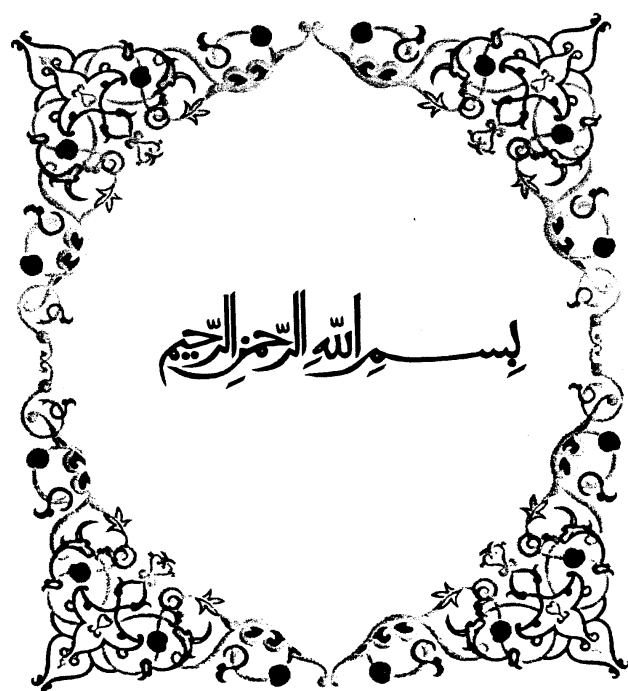 بِسمِ اللّهِ الرّحمنِ الرّحیمِ